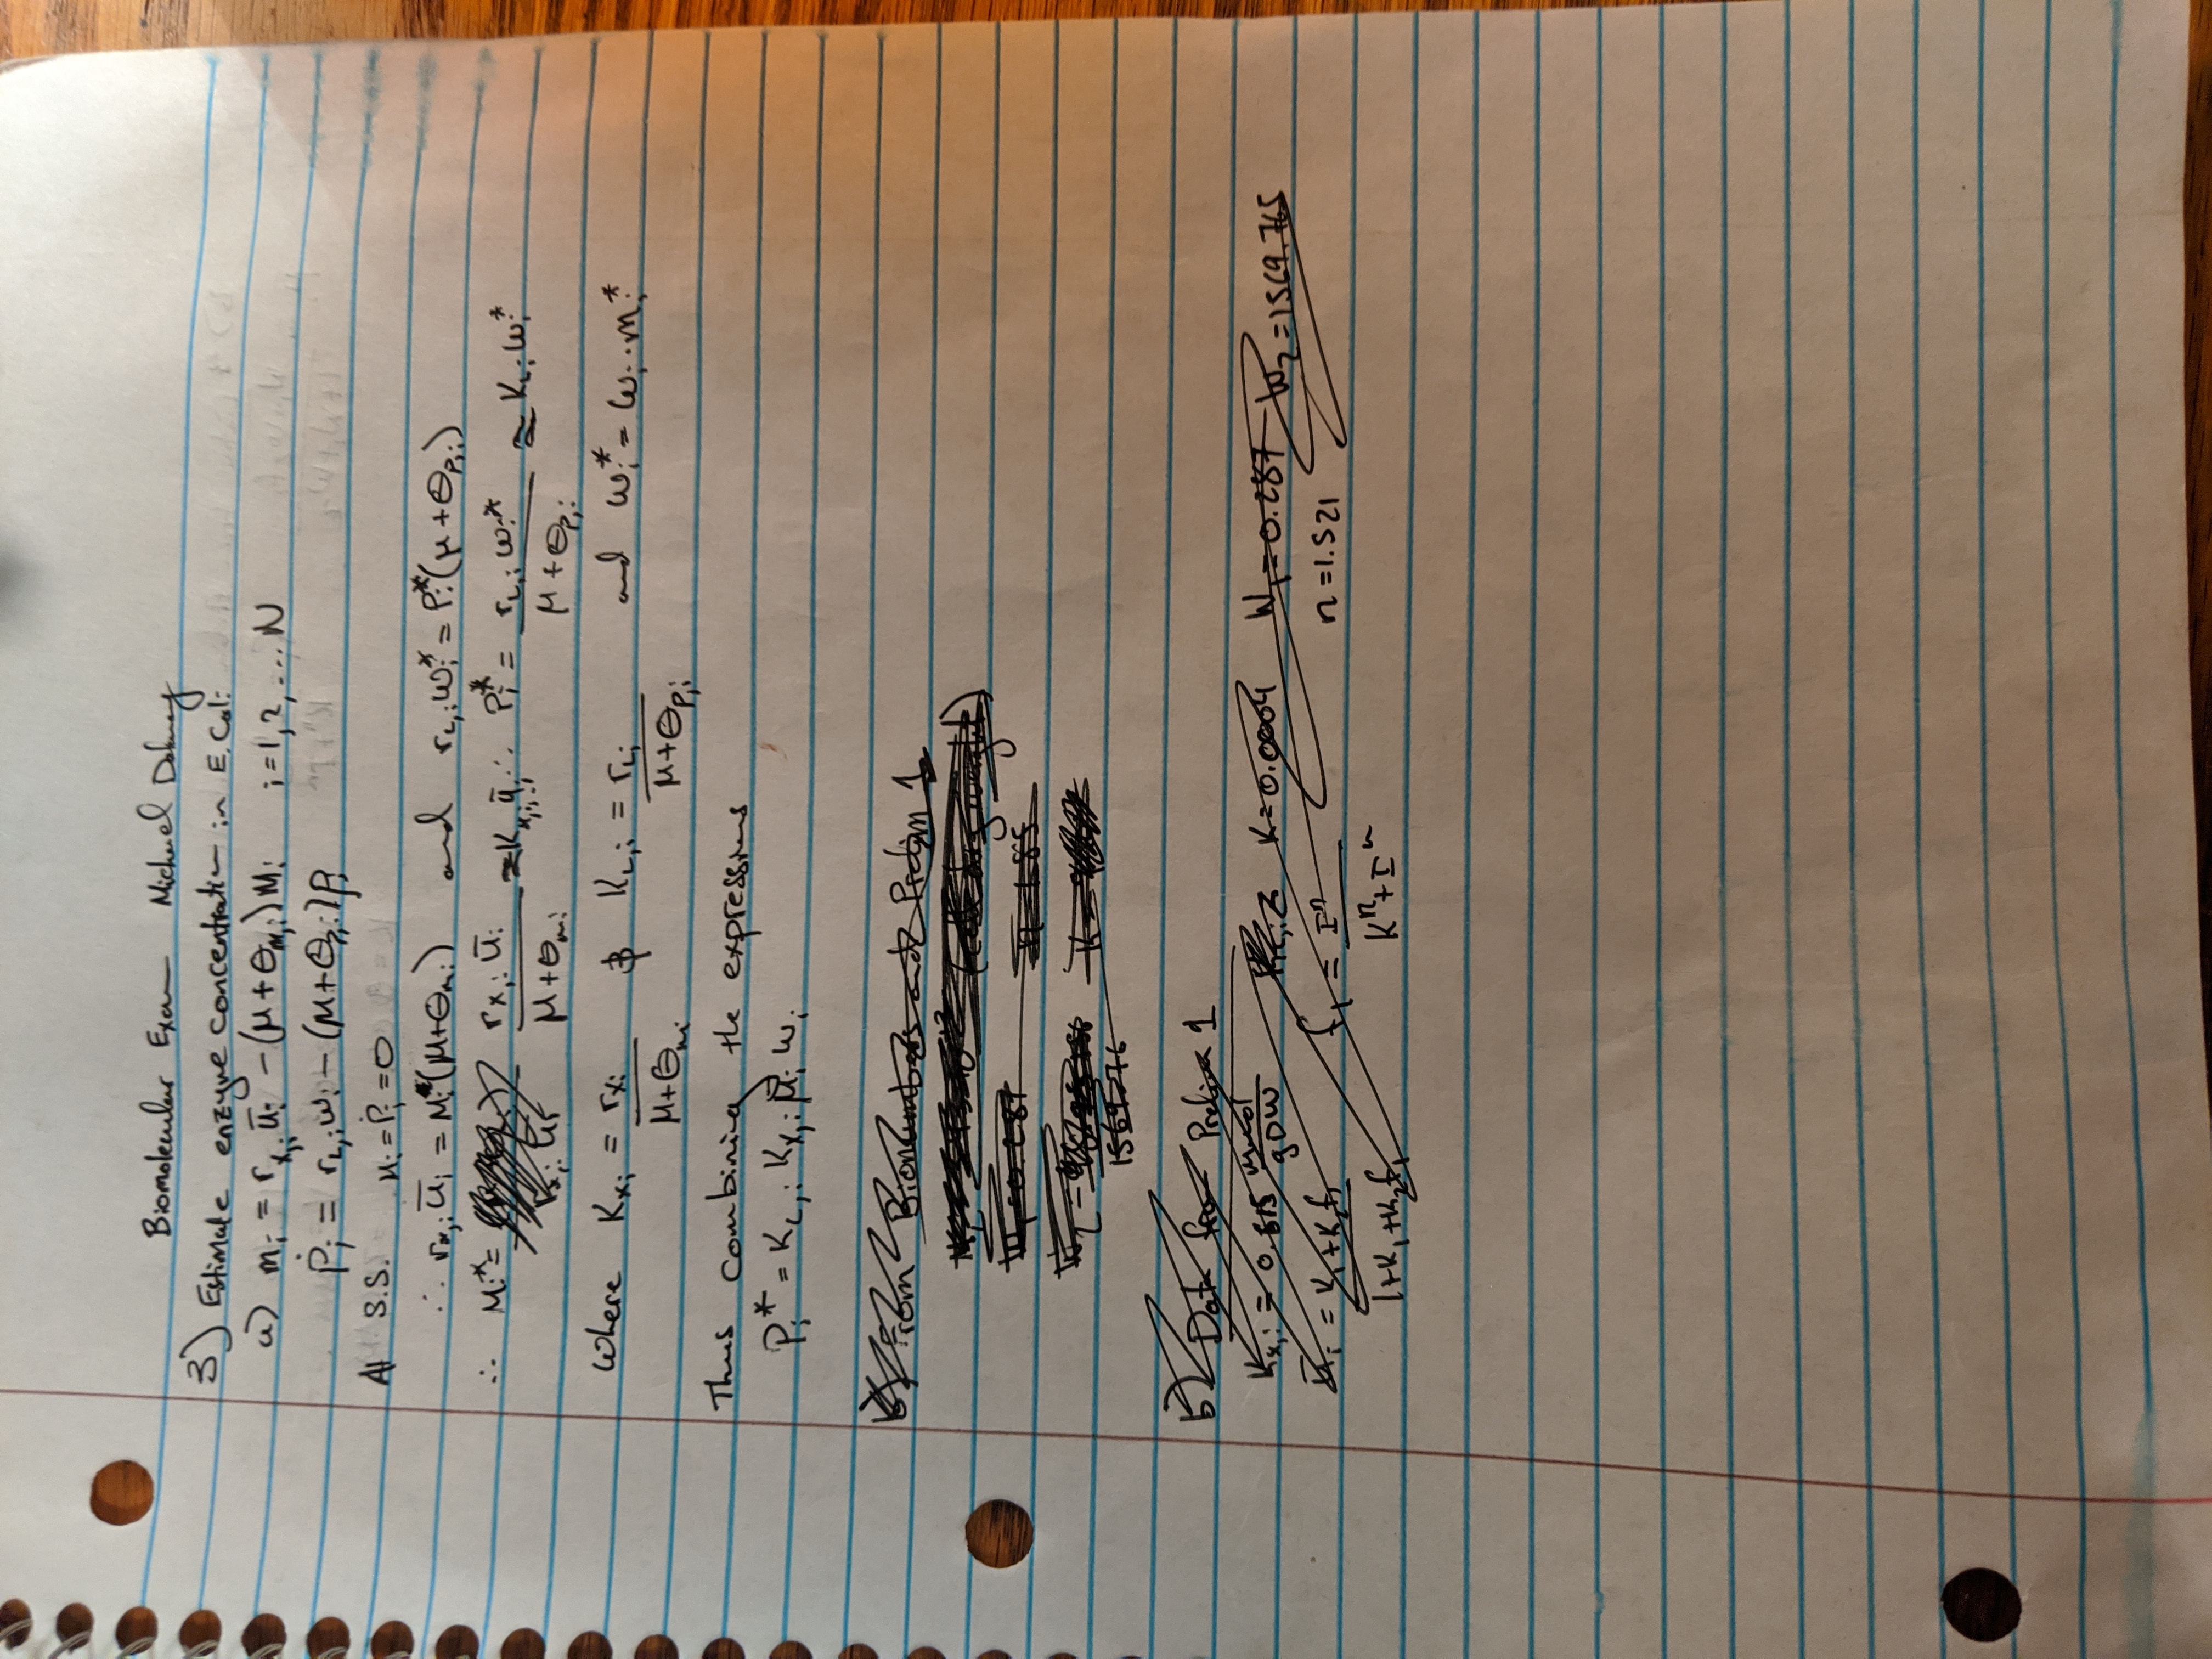 Biomolecular Exam Michael
3) Estimate enzyme concentration in E. Coli
a) ṁᵢ = r_x,i ūᵢ - (μ + θ_m,i) mᵢ i = 1, 2, ... N
ṗᵢ = r_L,i wᵢ - (μ + θ_p,i) pᵢ
At S.S. ṁᵢ = ṗᵢ = 0
∴ r_x,i ūᵢ = mᵢ*(μ + θ_m,i) and r_L,i wᵢ* = pᵢ*(μ + θ_p,i)
∴ mᵢ* = r_x,i ūᵢ / (μ + θ_m,i) = K_x,i ūᵢ ∴ pᵢ* = r_L,i wᵢ* / (μ + θ_p,i) = K_L,i wᵢ*
Where K_x,i = r_x,i / (μ + θ_m,i) & K_L,i = r_L,i / (μ + θ_p,i) and wᵢ* = wᵢ · mᵢ*
Thus combining the expressions
pᵢ* = K_L,i K_x,i μ̄ᵢ wᵢ
b) From Bionumbers and Prelim 1
b) Data from Prelim 1
K_x,i = 0.615 K = 0.0004 W₁ = 0.287 W₂ = 1569.765
ūᵢ = K₁ + K₂f₁ / 1 + K₁ + K₂f₁ f₁ = Iⁿ / Kⁿ + Iⁿ n = 1.521